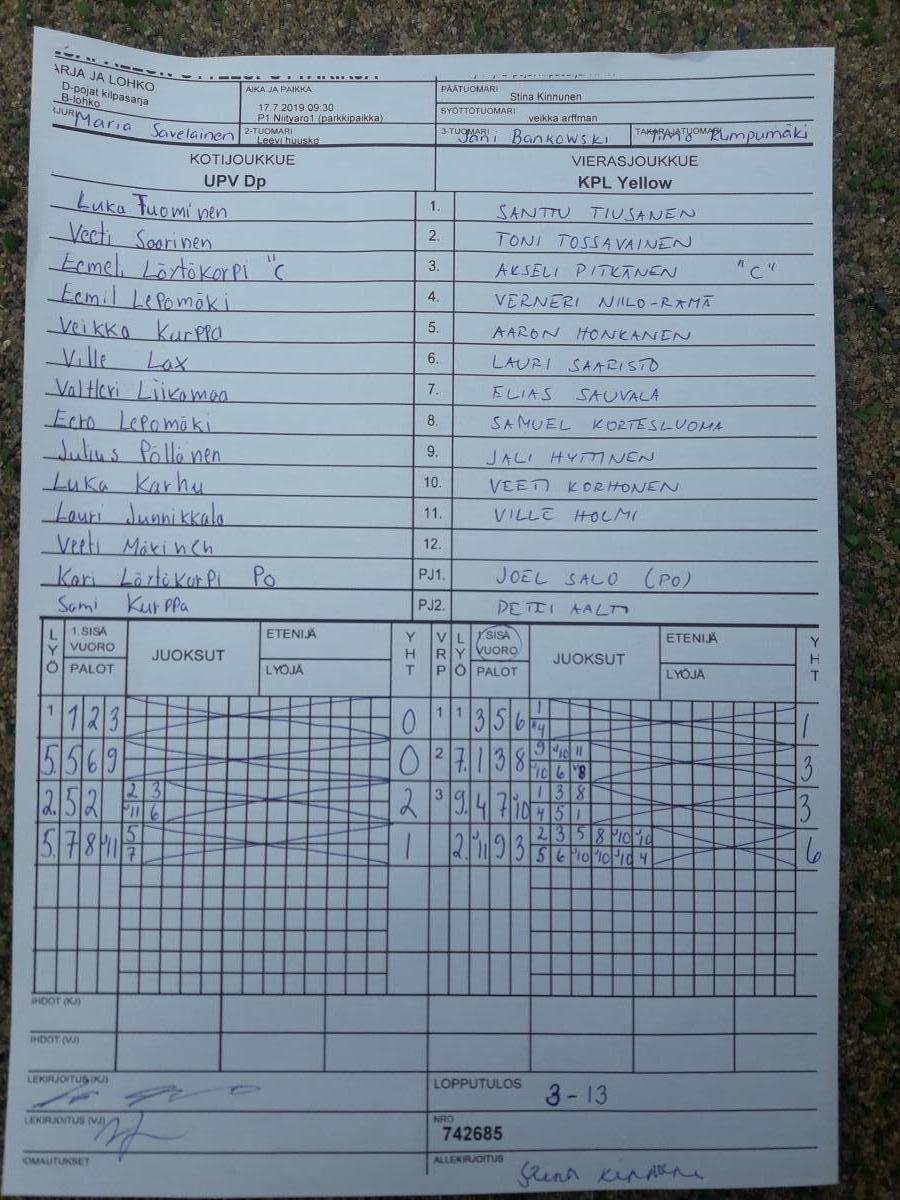 ARJA JA LOHKO
D-pojat kilpasarja
B-lohko
AIKA JA PAIKKA
17.7.2019 09:30
P1 Niityaro1 (parkkipaikka)
PÄÄTUOMARI
Stina Kinnunen
SYÖTTÖTUOMARI
veikka arffman
Maria Savelainen
2-TUOMARI
Leevi huusko
3-TUOMARI
Jani Bankowski
TAKARAJATUOMARI
Timo Rumpumäki
KOTIJOUKKUE
UPV Dp
VIERASJOUKKUE
KPL Yellow
Luka Tuominen 1. SANTTU TIUSANEN
Veeti Saarinen 2. TONI TOSSAVAINEN
Eemeli Löytökorpi "C 3. AKSELI PITKÄNEN "C"
Eemil Lepomäki 4. VERNERI NIILO-RÄMÄ
Veikka Kurppa 5. AARON HONKANEN
Ville Lax 6. LAURI SAARISTO
Valtteri Liikamaa 7. ELIAS SAUVALA
Eero Lepomäki 8. SAMUEL KORTESLUOMA
Julius Pöllänen 9. JALI HYTTINEN
Luka Karhu 10. VEETI KORHONEN
Lauri Junnikkala 11. VILLE HOLMI
Veeti Mäkinen 12.
Kari Löytökorpi PO PJ1. JOEL SALO (PO)
Sami Kurppa PJ2. PETRI AALTO
LYÖ 1.SISÄ VUORO PALOT JUOKSUT ETENIJÄ LYÖJÄ YHT VRP LYÖ 1.SISÄ VUORO PALOT JUOKSUT ETENIJÄ LYÖJÄ YHT
1 1 2 3 0 1 1 3 5 6 1 1
4
5. 5 6 9 0 2 7. 1 3 8 9 10 11 3
10 6 8
2. 5 2 2 3 2 3 9. 4 7 10 1 3 8 3
11 6 4 5 1
5. 7 8 11 5 1 2. 11 9 3 2 3 5 8 10 10 6
7 5 6 10 10 10 4
IHDOT (KJ)
IHDOT (VJ)
LEKIRJOITUS (KJ)
LOPPUTULOS 3-13
LEKIRJOITUS (VJ)
NRO
742685
OMAUTUKSET
ALLEKIRJOITUS